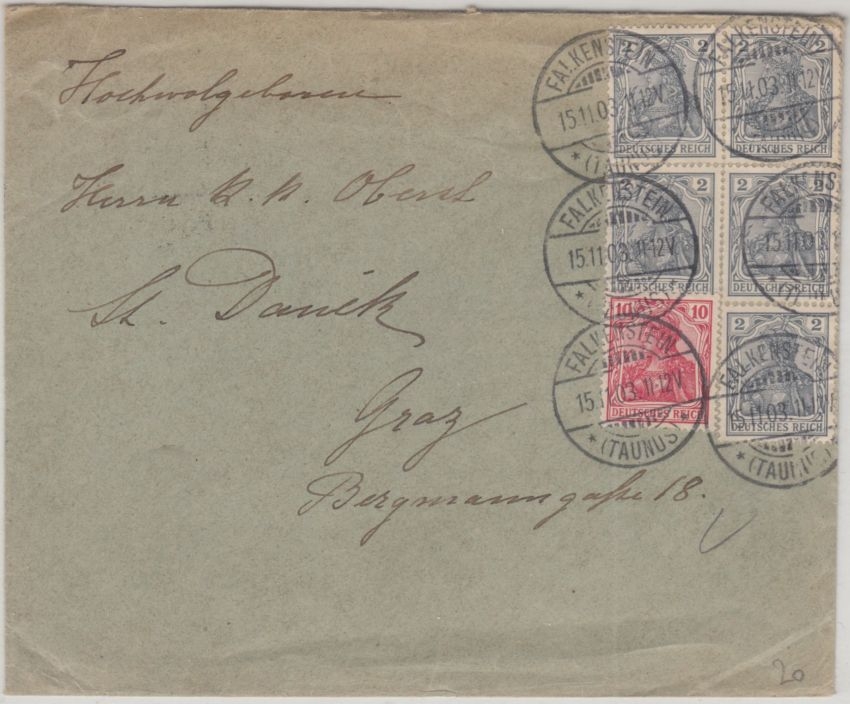 Hochwolgeboren
Herrn k. k. Oberst
St. Daněk
Graz
Bergmanngaße 18.
20
2 2
DEUTSCHES REICH
2 2
DEUTSCHES REICH
2 2
DEUTSCHES REICH
2 2
DEUTSCHES REICH
10 10
DEUTSCHES REICH
2 2
DEUTSCHES REICH
FALKENSTEIN
15.11.03.11-12V.
* (TAUNUS)
FALKENSTEIN
15.11.03.11-12V
FALKENSTEIN
15.11.03.11-12V.
* (TAUNUS)
FALKENS
15.11.03.
FALKENSTEIN
15.11.03.11-12V.
* (TAUNUS)
FALKENSTEIN
15.11.03.11-12V.
* (TAUNUS)